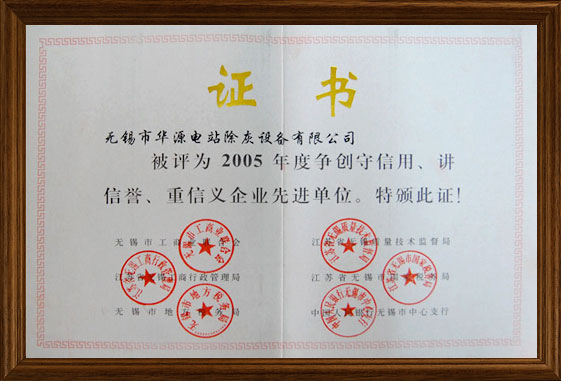 证 书
无锡市华源电站除灰设备有限公司
被评为 2005 年度争创守信用、讲
信誉、重信义企业先进单位。特颁此证!
无锡市工商业联合会 江苏省无锡质量技术监督局
江苏省无锡工商行政管理局 江苏省无锡市国家税务局
无锡市地方税务局 中国人民银行无锡市中心支行